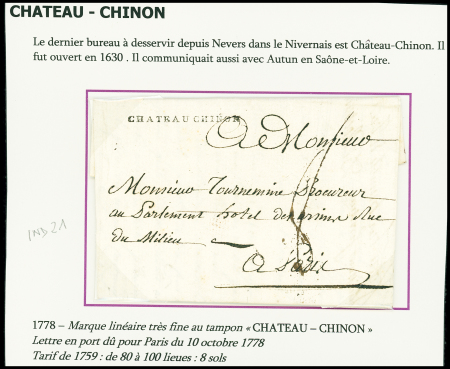 CHATEAU - CHINON
Le dernier bureau à desservir depuis Nevers dans le Nivernais est Château-Chinon. Il
fut ouvert en 1630 . Il communiquait aussi avec Autun en Saône-et-Loire.
CHATEAU CHINON
A Monsieur
Monsieur Tournemine Procureur
au Parlement hotel Rue
du Milieu
A Paris
IND 21
1778 – Marque linéaire très fine au tampon « CHATEAU – CHINON »
Lettre en port dû pour Paris du 10 octobre 1778
Tarif de 1759 : de 80 à 100 lieues : 8 sols